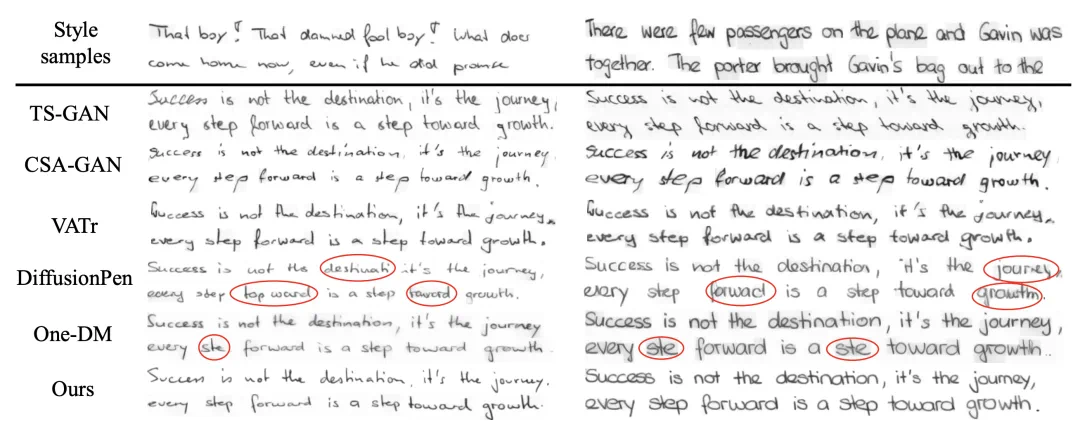 Style samples
That boy! That damned fool boy! What does
come home now, even if he did promise
There were few passengers on the plane and Gavin was
together. The porter brought Gavin's bag out to the
TS-GAN
Success is not the destination, it's the journey,
every step forward is a step toward growth.
Success is not the destination, it's the journey,
every step forward is a step toward growth.
CSA-GAN
success is not the destination, it's the journey,
every step forward is a step toward growth.
success is not the destination, it's the journey,
every step forward is a step toward growth.
VATr
Success is not the destination, it's the journey,
every step forward is a step toward growth.
Success is not the destination, it's the journey,
every step forward is a step toward growth.
DiffusionPen
Success is not the destinati it's the journey,
every step top ward is a step taward growth.
Success is not the destination, it's the journey,
every step forwacl is a step toward growthn.
One-DM
Success is not the destination, it's the journey
every ste forward is a step toward growth.
Success is not the destination, it's the journey,
every ste forward is a ste toward growth..
Ours
Success is not the destination, it's the journey.
every step forward is a step toward growth.
Success is not the destination, it's the journey,
every step forward is a step toward growth.